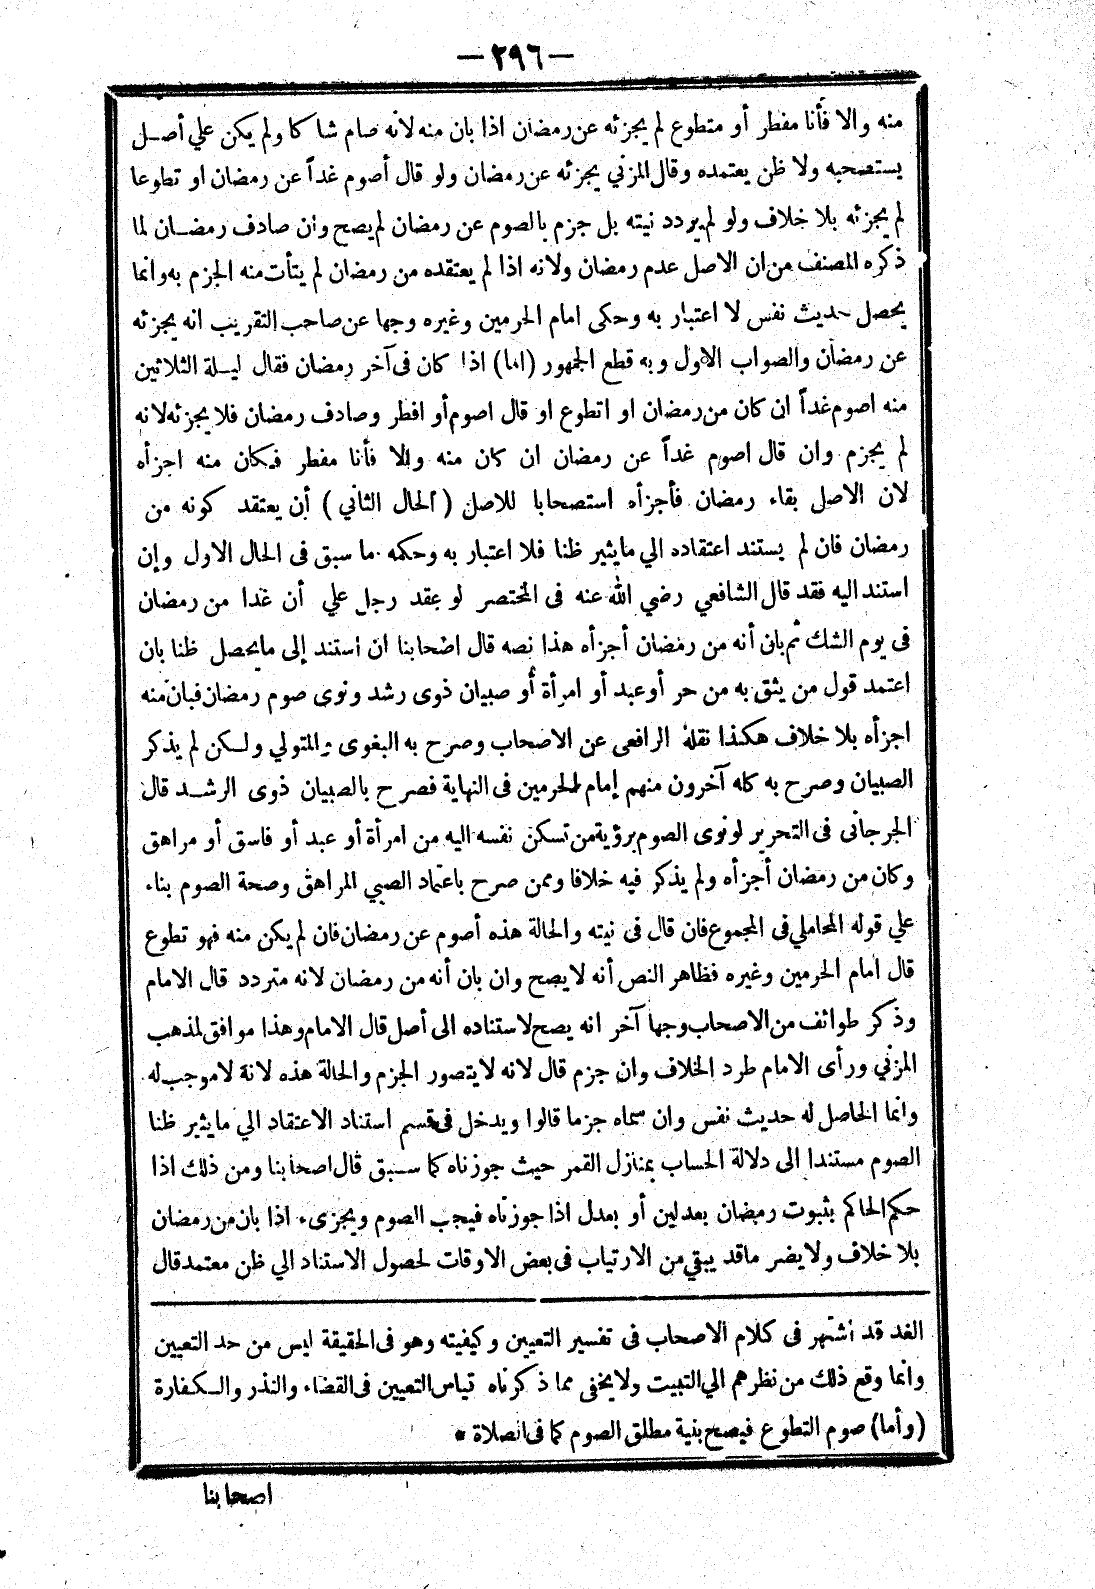 — ٢٩٦ —
منه والا فأنا مفطر أو متطوع لم يجزئه عن رمضان اذا بان منه لانه صام شاكا ولم يكن علي أصل
يستصحبه ولا ظن يعتمده وقال المزني يجزئه عن رمضان ولو قال أصوم غداً عن رمضان او تطوعا
لم يجزئه بلا خلاف ولو لم يردد نيته بل جزم بالصوم عن رمضان لم يصح وان صادف رمضان لما
ذكره المصنف من ان الاصل عدم رمضان ولانه اذا لم يعتقده من رمضان لم يتأت منه الجزم به وانما
يحصل حديث نفس لا اعتبار به وحكى امام الحرمين وغيره وجها عن صاحب التقريب انه يجزئه
عن رمضان والصواب الاول وبه قطع الجمهور (اما) اذا كان فى آخر رمضان فقال ليلة الثلاثين
منه اصوم غداً ان كان من رمضان او اتطوع او قال اصوم أو افطر وصادف رمضان فلا يجزئه لانه
لم يجزم وان قال اصوم غداً عن رمضان ان كان منه والا فأنا مفطر فكان منه اجزأه
لان الاصل بقاء رمضان فأجزأه استصحابا للاصل (الحال الثاني) أن يعتقد كونه من
رمضان فان لم يستند اعتقاده الي مايثير ظنا فلا اعتبار به وحكمه ما سبق فى الحال الاول وإن
استند اليه فقد قال الشافعي رضي الله عنه فى المختصر لو عقد رجل علي أن غدا من رمضان
فى يوم الشك ثم بان أنه من رمضان أجزأه هذا نصه قال اصحابنا ان استند إلى مايحصل ظنا بان
اعتمد قول من يثق به من حر أو عبد أو امرأة أو صبيان ذوى رشد ونوى صوم رمضان فبان منه
اجزأه بلا خلاف هكذا نقله الرافعى عن الاصحاب وصرح به البغوى والمتولي ولكن لم يذكر
الصبيان وصرح به كله آخرون منهم إمام الحرمين فى النهاية فصرح بالصبيان ذوى الرشد قال
الجرجانى فى التحرير لو نوى الصوم برؤية من تسكن نفسه اليه من امرأة أو عبد أو فاسق أو مراهق
وكان من رمضان أجزأه ولم يذكر فيه خلافا وممن صرح باعتماد الصبي المراهق وصحة الصوم بناء
علي قوله المحاملي فى المجموع فان قال فى نيته والحالة هذه أصوم عن رمضان فان لم يكن منه فهو تطوع
قال امام الحرمين وغيره فظاهر النص أنه لا يصح وان بان أنه من رمضان لانه متردد قال الامام
وذكر طوائف من الاصحاب وجها آخر انه يصح لاستناده الى أصل قال الامام وهذا موافق لمذهب
المزني ورأى الامام طرد الخلاف وان جزم قال لانه لا يتصور الجزم والحالة هذه لانة لا موجب له
وانما الحاصل له حديث نفس وان سماه جزما قالوا ويدخل فى قسم استناد الاعتقاد الي مايثير ظنا
الصوم مستندا الى دلالة الحساب بمنازل القمر حيث جوزناه كما سبق قال اصحابنا ومن ذلك اذا
حكم الحاكم بثبوت رمضان بعدلين أو بعدل اذا جوزناه فيجب الصوم ويجزىء اذا بان من رمضان
بلا خلاف ولا يضر ماقد يبقي من الارتياب فى بعض الاوقات لحصول الاستناد الي ظن معتمد قال
الغد قد اشتهر فى كلام الاصحاب فى تفسير التعيين وكيفيته وهو فى الحقيقة ليس من حد التعيين
وانما وقع ذلك من نظرهم الي التبييت ولا يخفى مما ذكرناه قياس التعيين فى القضاء والنذر والكفارة
(وأما) صوم التطوع فيصح بنية مطلق الصوم كما فى الصلاة *
اصحابنا